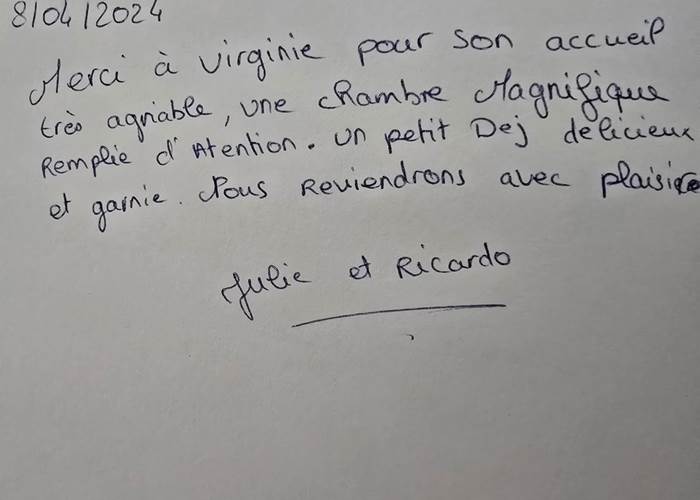 8/04/2024
Merci à Virginie pour son accueil
très agriable, une chambre Magnifique
Remplie d'Atention. un petit Dej délicieux
et garnie. Nous Reviendrons avec plaisire
Julie et Ricardo